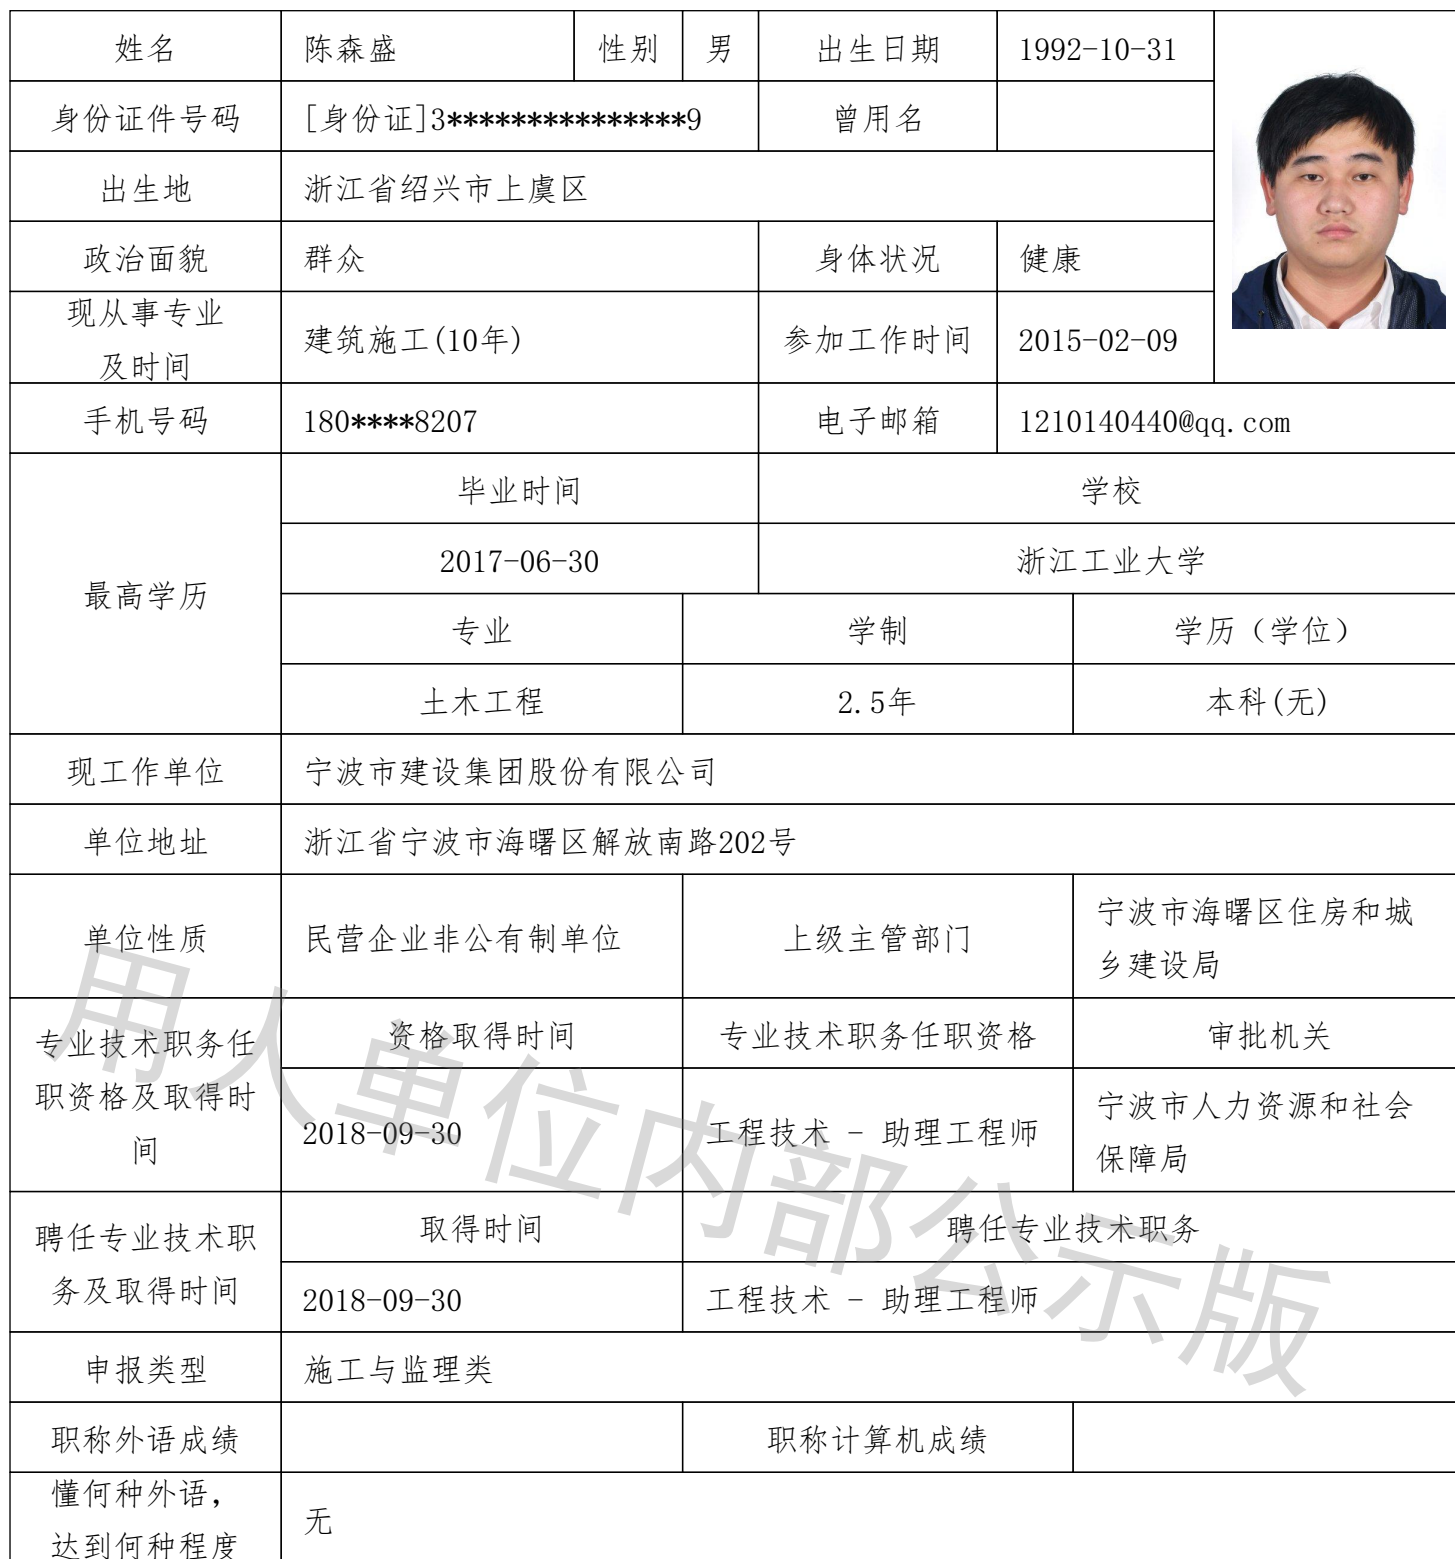 姓名 陈森盛 性别 男 出生日期 1992-10-31
身份证件号码 [身份证]3***************9 曾用名
出生地 浙江省绍兴市上虞区
政治面貌 群众 身体状况 健康
现从事专业
及时间
建筑施工(10年) 参加工作时间 2015-02-09
手机号码 180****8207 电子邮箱 1210140440@qq.com
最高学历
毕业时间 学校
2017-06-30 浙江工业大学
专业 学制 学历（学位）
土木工程 2.5年 本科(无)
现工作单位 宁波市建设集团股份有限公司
单位地址 浙江省宁波市海曙区解放南路202号
单位性质 民营企业非公有制单位 上级主管部门
宁波市海曙区住房和城
乡建设局
专业技术职务任
职资格及取得时
间
资格取得时间 专业技术职务任职资格 审批机关
2018-09-30 工程技术 - 助理工程师
宁波市人力资源和社会
保障局
聘任专业技术职
务及取得时间
取得时间 聘任专业技术职务
2018-09-30 工程技术 - 助理工程师
申报类型 施工与监理类
职称外语成绩 职称计算机成绩
懂何种外语，
达到何种程度
无
用人单位内部公示版